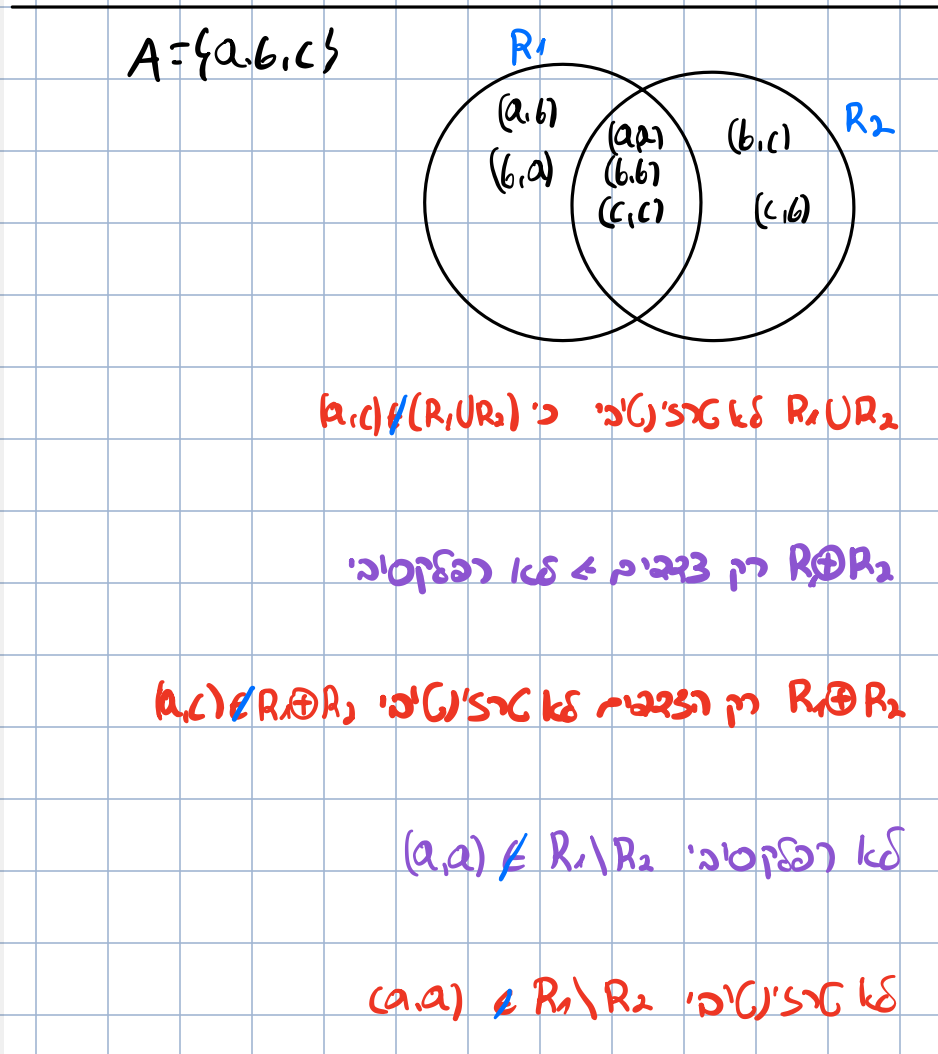 A={a,b,c}
R1
R2
(a,b)
(b,a)
(a,a)
(b,b)
(c,c)
(b,c)
(c,b)
R₁∪R₂ לא טרנזיטיבי כי (a,c)∉(R₁∪R₂)
R₁⊕R₂ רק צדדים > לא רפלקסיבי
R₁⊕R₂ רק הצדדים לא טרנזיטיבי (a,c)∉R₁⊕R₂
לא רפלקסיבי (a,a) ∉ R₁\R₂
לא טרנזיטיבי (a,a) ∉ R₁\R₂